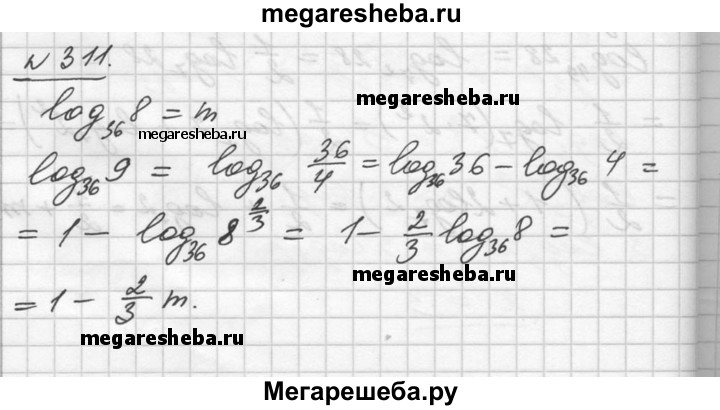 megaresheba.ru
№ 311.
log₃₆ 8 = m
megaresheba.ru
megaresheba.ru
log₃₆ 9 = log₃₆ 36/4 = log₃₆ 36 − log₃₆ 4 =
= 1 − log₃₆ 8^(2/3) = 1 − 2/3 log₃₆ 8 =
megaresheba.ru
= 1 − 2/3 m.
megaresheba.ru
megaresheba.ru
Мегарешеба.ру